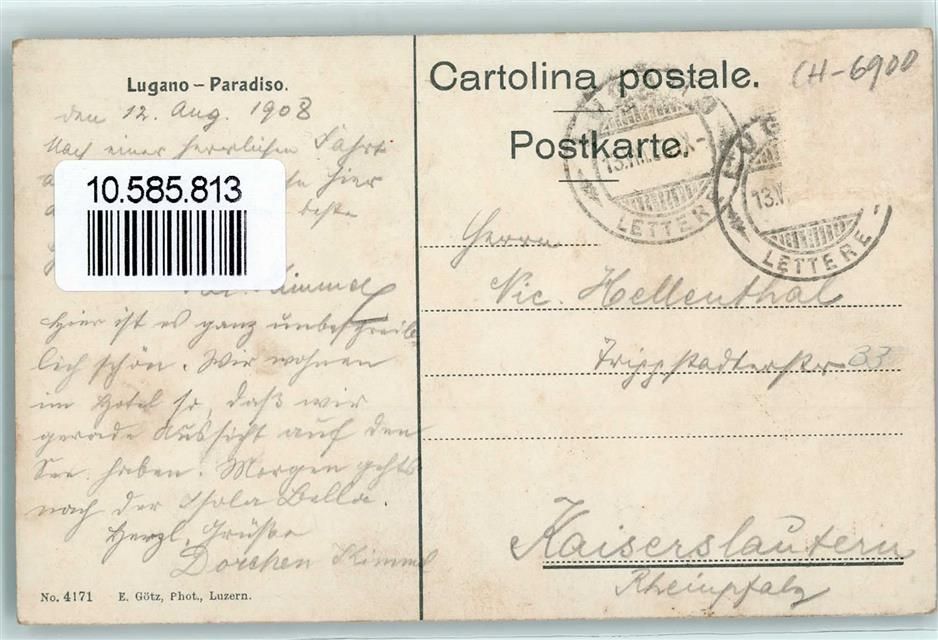 Lugano – Paradiso.
den 12. Aug. 1908
Nach einer herrlichen Fahrt
hier
beste
10.585.813
Kimmel
Hier ist es ganz unbeschreib-
lich schön. Wir wohnen
im Hotel so, daß wir
gerade Aussicht auf den
See haben. Morgen gehts
nach der Isola Bella.
Herzl. Grüße
Dorchen Kimmel
No. 4171 E. Götz, Phot., Luzern.
Cartolina postale.
CH-6900
Postkarte.
LETTERE
LUG
13.V
LETTERE
Herrn
Nic. Hellenthal
Trippstadterstr 33
Kaiserslautern
Rheinpfalz